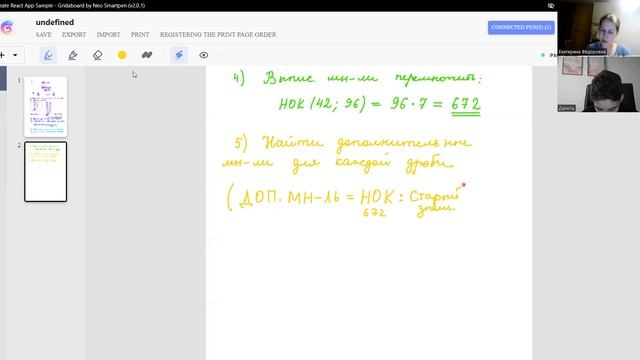 eate React App Sample - Gridaboard by Neo Smartpen (v2.0.1)
undefined
SAVE EXPORT IMPORT PRINT REGISTERING THE PRINT PAGE ORDER
CONNECTED PEN(S) (1)
Екатерина Фёдоровна
Даниль
1
2
4) Выпис. мн-ли перемножить:
НОК (42; 96) = 96 · 7 = 672
5) Найти дополнительные
мн-ли для каждой дроби
( ДОП. МН-ЛЬ = НОК : Старый
672 знам.